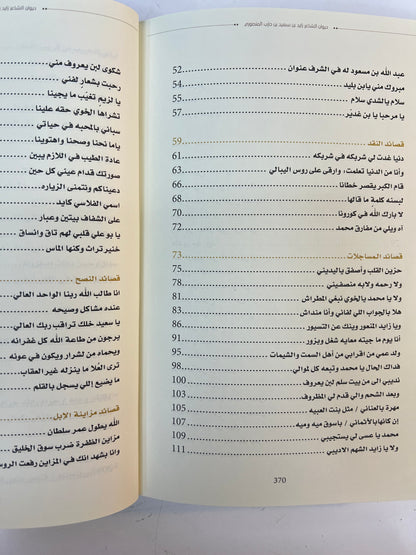 ديوان الشاعر زايد بن سعيد بن حارب المنصوري
عبد الله بن مسعود له في الشرف عنوان 52
مبروك مني يابن بليد 54
سلام يالشدي سلام 55
يا مرحبا يا بن غدير 57
قصائد النقد 59
دنيا غدت لي شريكه في شريكه 61
وأنا من الدنيا تعلمت، وارقى على روس اليبالي 63
قام الكبر يقصر خطانا 66
لبسنه كلمة ما قالها 68
لا بارك الله في كورونا 70
آه ويلي من مفارق محمد 72
قصائد المساجلات 73
حزين القلب وأصفق باليديني 75
ولا رحمه ولابه منصفيني 78
ولا يا محمد يالخوي نبغي المطراش 81
هلا بالجواب اللي لفاني وأنا منداش 83
ويا زايد المنعور وينك عن التسيور 87
أنا يوم ما جيته معايه شغل ويزور 91
ولد عمي من اقرابي من أهل السمت والشيمات 95
فداك الحال يا محمد وتبعه كل لموالي 98
نديبي الى من بيت سلم لين يعروف 100
وبعد الشحم والي قدم لي المظروف 103
مهرة بالعناني / مثل بنت العبيه 105
إن كانها بالأثماني / باسوق ميه وميه 107
محمد يا عسى لي يستجيبي 109
ولا يا زايد الشهم الاديبي 111
370
ديوان الشاعر زايد
شكوى لين يعروف مني
رحبت بشعار لفني
يا لزيم تغيّب ما يجينا
تشراها الخوي حقه علينا
سباني بالمحبه في حياتي
ياما نحنا وصحنا واهتوينا
عادة الطيب في اللازم يبين
صورتك قدام عيني كل حين
دعيناكم ونتمنى الزياره
اسمي الفلاسي كايد
على الشفاف بيتين وعبار
يا بو علي قلبي لهم تاق وانساق
خنير تراث وكنها الماس
قصائد النصح
انا طالب الله ربنا الواحد العالي
عنده مشاكل وصيحه
يا سعيد خلك تراقب ربك العالي
يرجون من طاعة الله كل غفرانه
ويحماه من لشرار ويكون في عونه
ترى العُلا ما ينزله غير العقاب
ما يضيع إلي يسجل بالقلم
قصائد مزاينة الإبل
الله يطول عمر سلطان
مزاين الظفرة ضرب سوق الخليق
وانا بشهد انك في المزاين رفعت الروس